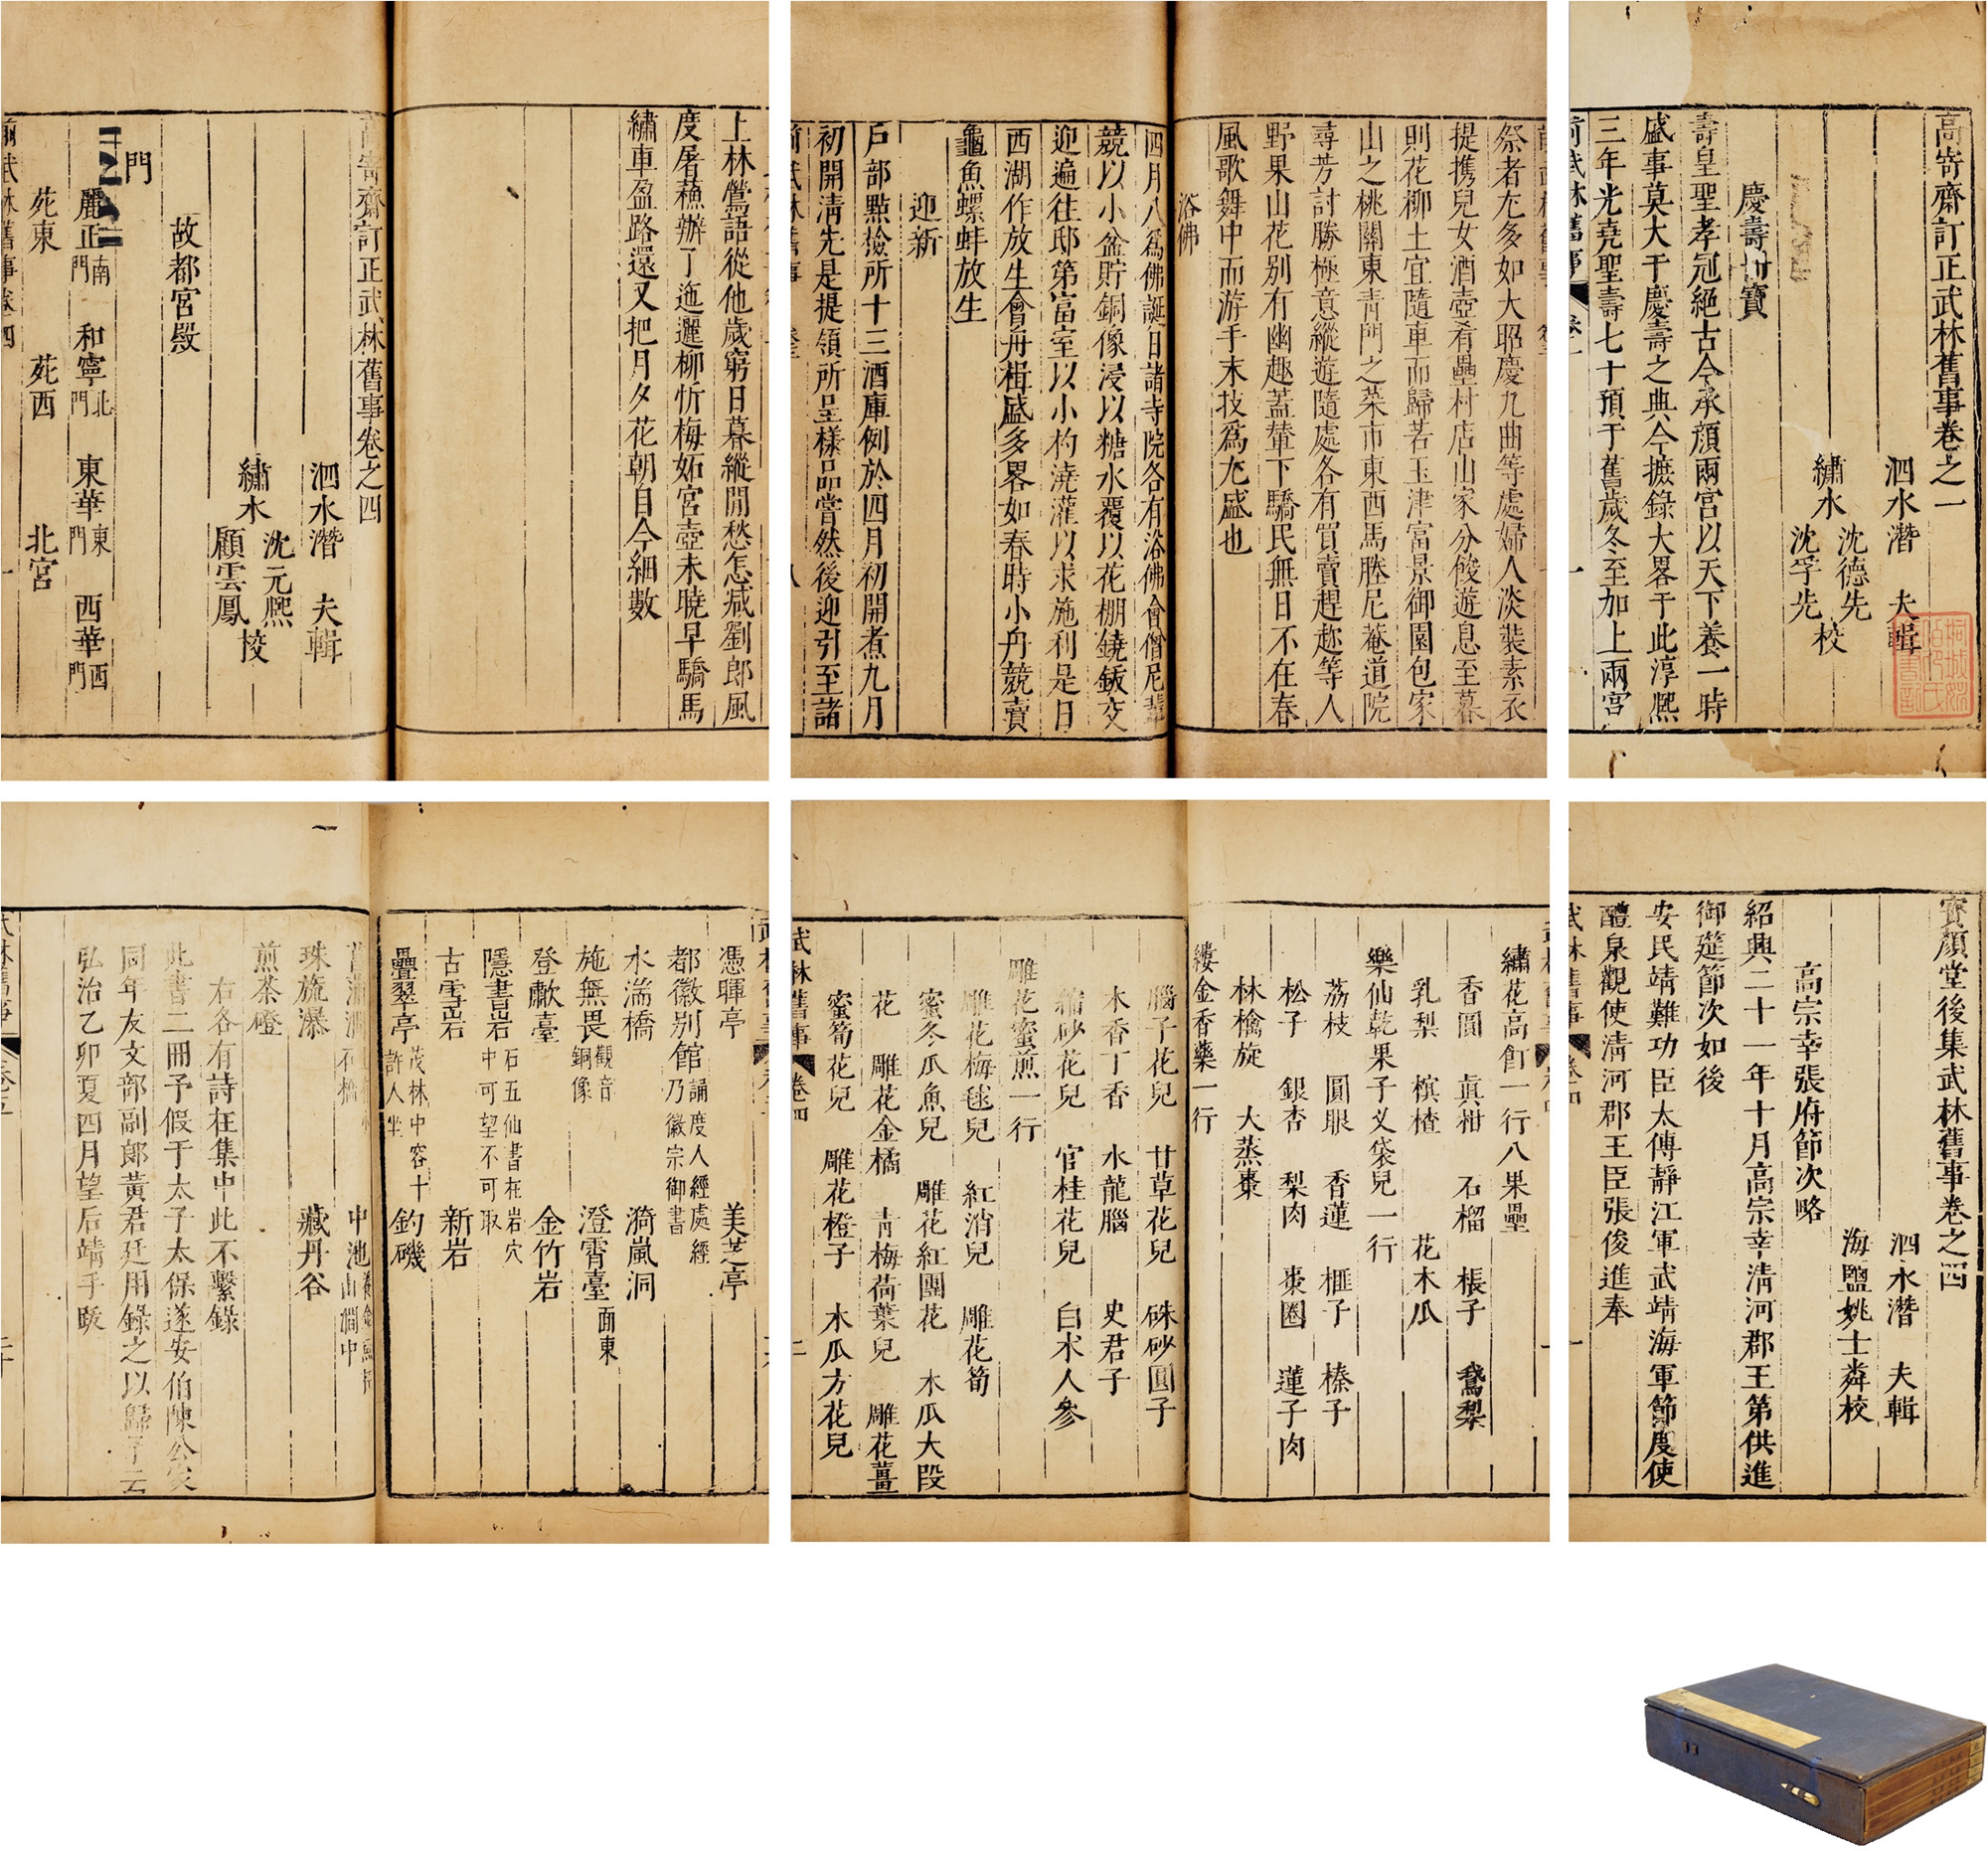 高寄齋訂正武林舊事卷之一
泗水潛 夫輯
繡水 沈德先 沈孚先 校
慶壽冊寶
壽皇聖孝冠絕古今承顏兩宮以天下養一時
盛事莫大于慶壽之典今摭錄大畧于此淳熙
三年光堯聖壽七十預于舊歲冬至加上兩宮
前武林舊事 卷一 一
祭者尤多如大昭慶九曲等處婦人淡裝素衣
提携兒女酒壺肴罍村店山家分餕遊息至暮
則花柳土宜隨車而歸若玉津富景御園包家
山之桃關東靑門之菜市東西馬塍尼菴道院
尋芳討勝極意縱遊隨處各有買賣趕趂等人
野果山花别有幽趣蓋輦下驕民無日不在春
風歌舞中而游手末技爲尤盛也
浴佛
四月八爲佛誕日諸寺院各有浴佛會僧尼輩
競以小盆貯銅像浸以糖水覆以花棚鐃鈸交
迎遍往邸第富室以小杓澆灌以求施利是日
西湖作放生會舟楫盛多畧如春時小舟競賣
龜魚螺蚌放生
迎新
戶部點檢所十三酒庫例於四月初開煮九月
初開淸先是提領所呈樣品嘗然後迎引至諸
前武林舊事 卷三 八
上林鶯語從他歲窮日暮縱閒愁怎减劉郎風
度屠蘇辦了迤邐柳忻梅妬宮壺未曉早驕馬
繡車盈路還又把月夕花朝自今細數
高寄齋訂正武林舊事卷之四
泗水潛 夫輯
繡水 沈元熙 顧雲鳳 挍
故都宮殿
門
麗正南門 和寧北門 東華東門 西華西門
苑東 苑西 北宮
前武林舊事卷四 一
寳顏堂後集武林舊事卷之四
泗水潛 夫輯
海鹽姚士粦校
高宗幸張府節次略
紹興二十一年十月高宗幸淸河郡王第供進
御筵節次如後
安民靖難功臣太傅靜江軍武靖海軍節度使
醴泉觀使淸河郡王臣張俊進奉
武林舊事 卷四 一
繡花高飣一行八果壘
香圓 眞柑 石榴 棖子 鵞梨
乳梨 榠楂 花木瓜
樂仙乾果子乂袋兒一行
荔枝 圓眼 香蓮 榧子 榛子
松子 銀杏 梨肉 棗圈 蓮子肉
林檎旋 大蒸棗
縷金香藥一行
腦子花兒 甘草花兒 硃砂圓子
木香丁香 水龍腦 史君子
縮砂花兒 官桂花兒 白朮人參
雕花蜜煎一行
雕花梅毬兒 紅消兒 雕花筍
蜜冬瓜魚兒 雕花紅團花 木瓜大段
花 雕花金橘 靑梅荷葉兒 雕花薑
蜜筍花兒 雕花橙子 木瓜方花兒
武林舊事 卷四 二
憑暉亭 美芝亭
都徽别館 誦度人經處經乃徽宗御書
水湍橋 漪嵐洞
施無畏 觀音銅像 澄霄臺 面東
登歗臺 金竹岩
隱書岩 石五仙書在岩穴中可望不可取
古雪岩 新岩
疊翠亭 茂林中容十許人坐 釣磯
石橋 中池 山澗中
珠旒瀑 藏丹谷
煎茶磴
右各有詩在集中此不繫錄
此書二冊予假于太子太保遂安伯陳公寅
同年友文部副郎黃君廷用錄之以歸予云
弘治乙卯夏四月望后靖手䟦
武林舊事 卷五 二十